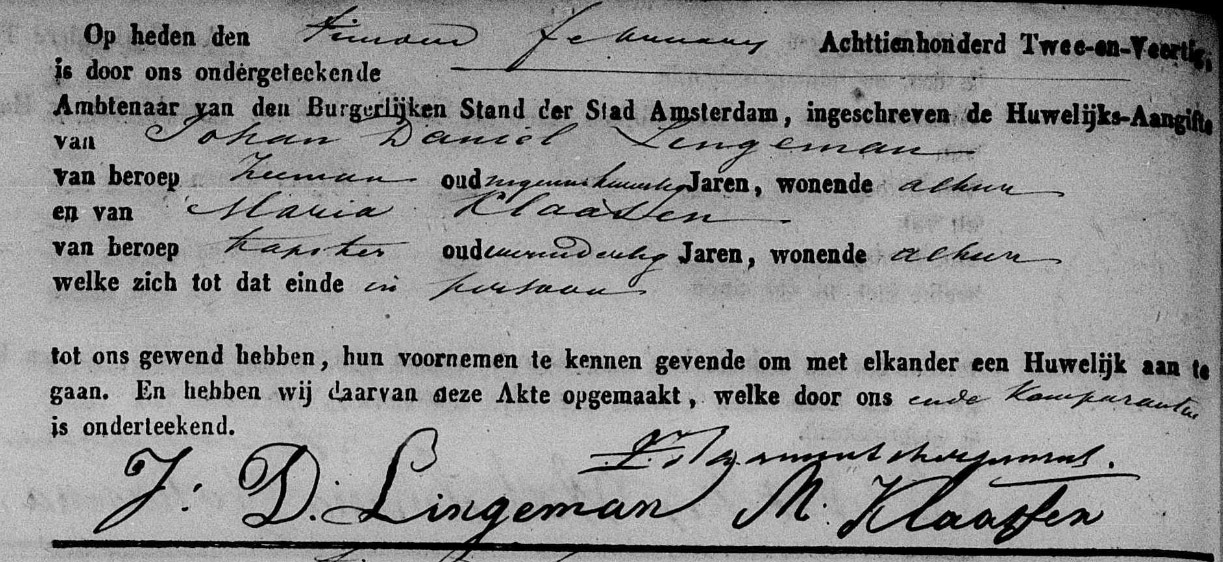 Op heden den Februarij Achttienhonderd Twee-en-Veertig,
is door ons ondergeteekende
Ambtenaar van den Burgerlijken Stand der Stad Amsterdam, ingeschreven de Huwelijks-Aangifte
van Johan Daniel Lingeman
van beroep Zeeman oud Jaren, wonende alhier
en van Maria Klaassen
van beroep tapster oud Jaren, wonende alhier
welke zich tot dat einde in persoon
tot ons gewend hebben, hun voornemen te kennen gevende om met elkander een Huwelijk aan te
gaan. En hebben wij daarvan deze Akte opgemaakt, welke door ons ende Komparanten
is onderteekend.
J: D. Lingeman M. Klaassen